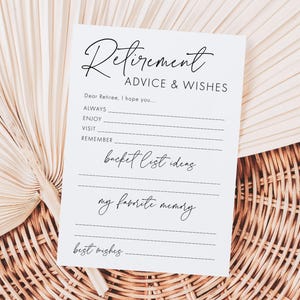 Retirement
ADVICE & WISHES
Dear Retiree, I hope you...
ALWAYS
ENJOY
VISIT
REMEMBER
bucket list ideas
my favorite memory
best wishes